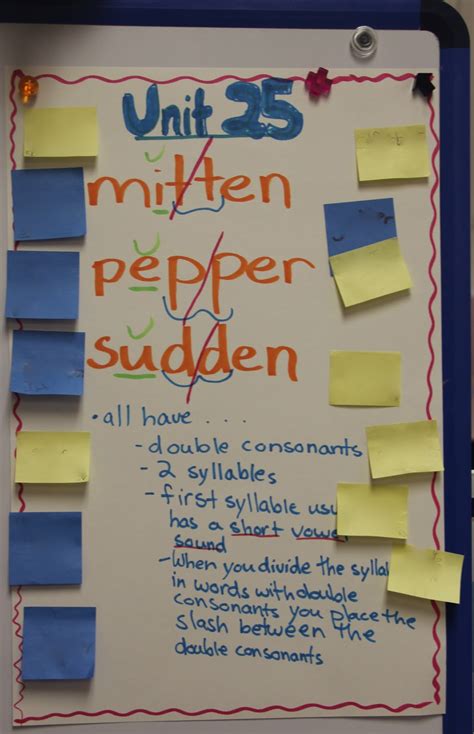 Unit 25
mitten
pepper
sudden
• all have . . .
- double consonants
- 2 syllables
- first syllable
has a short
sound
- When you divide the
in words with double
consonants you place the
slash between the
double consonants